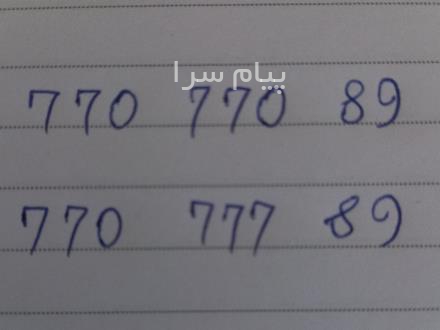 پیام سرا
770 770 89
770 777 89